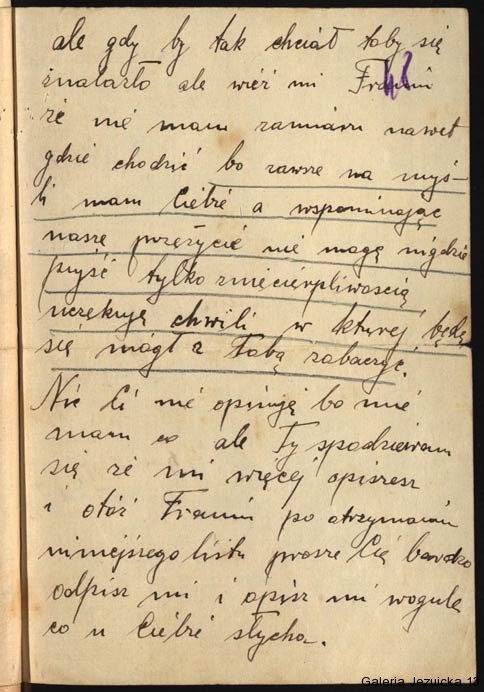 ale gdy by tak chciał toby się
znalazło ale wież mi Franiu
48
że nie mam zamiaru nawet
gdzie chodzić bo zawsze na myś-
li mam Ciebie a wspominając
nasze przeżycie nie mogę nigdzie
pujść tylko zniecierpliwością
uczękuję chwili w kturej będę
się mógł z Tobą zobaczyć.
Nic Ci nie opisuję bo nie
mam co ale Ty spodziewam
się że mi więcej opiszesz
i otóż Franiu po otrzymaniu
niniejszego listu prosze Cię bardzo
odpisz mi i opisz mi wogule
co u Ciebie słychać.
Galeria Jezuicka 13